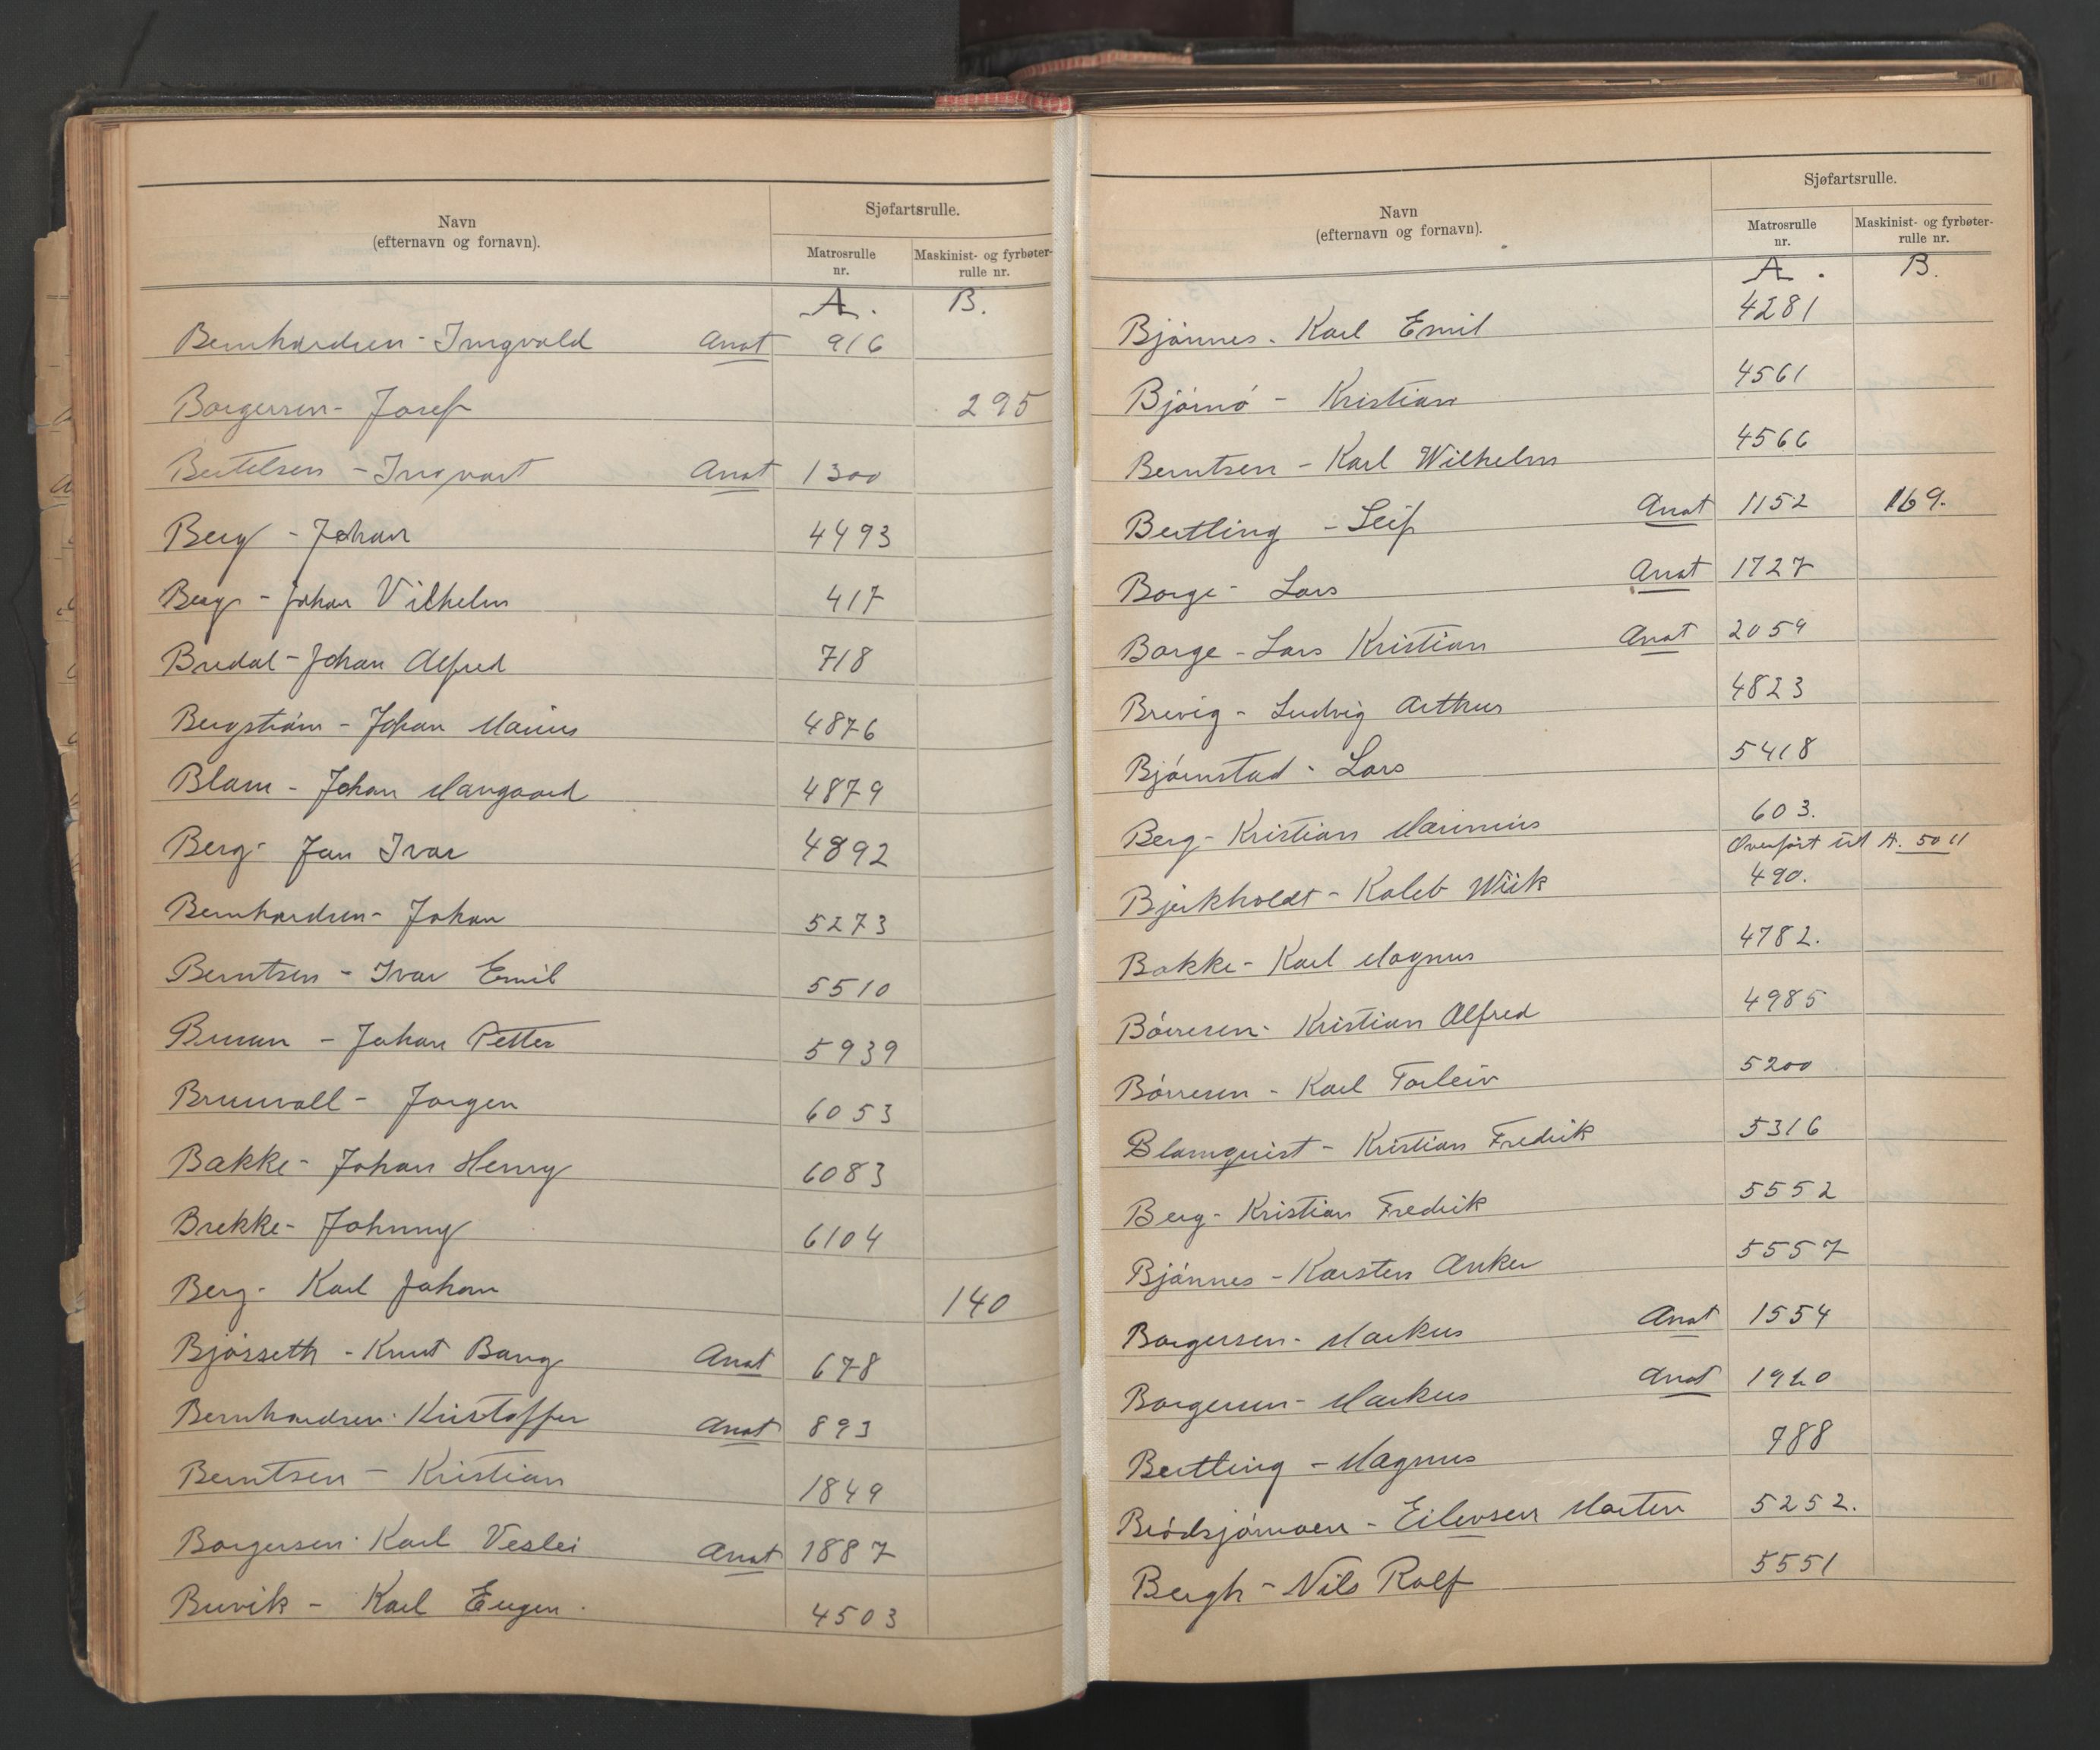 Navn
(efternavn og fornavn).
Sjøfartsrulle.
Matrosrulle
nr.
Maskinist- og fyrbøter-
rulle nr.
A. B.
Bernhardsen - Ingvald Anot 916
Borgersen - Josef 295
Bertelsen - Ingvart Anot 1300
Berg - Johan 4493
Berg - Johan Vilhelm 417
Bredal - Johan Alfred 718
Bergstrøm - Johan Marius 4876
Blom - Johan Mangaard 4879
Berg - Jan Ivar 4892
Bernhardsen - Johan 5273
Berntsen - Ivar Emil 5510
- Johan Petter 5939
Brunvall - Jørgen 6053
Bakke - Johan Henry 6083
Brekke - Johnny 6104
Berg - Karl Johan 140
Bjørseth - Knut Bang Anot 678
Bernhardsen - Kristoffer Anot 893
Berntsen - Kristian 1849
Borgersen - Karl Veslei Anot 1887
Buvik - Karl Eugen. 4503
Navn
(efternavn og fornavn).
Sjøfartsrulle.
Matrosrulle
nr.
Maskinist- og fyrbøter-
rulle nr.
A. B.
Bjønnes - Karl Emil 4281
Bjørnø - Kristian 4561
Berntsen - Karl Wilhelm 4566
Bertling - Leif Anot 1152 169.
Borge - Lars Anot 1727
Borge - Lars Kristian Anot 2059
Brevig - Ludvig Arthur 4823
Bjørnstad - Lars 5418
Berg - Kristian Marinius 603.
Overført til A. 5011
Bjerkholdt - Kaleb Wiik 490.
Bakke - Karl Magnus 4782.
Børresen - Kristian Alfred 4985
Børresen - Karl Torleiv 5200
Blomquist - Kristian Fredrik 5316
Berg - Kristian Fredrik 5552
Bjønnes - Karsten Anker 5557
Borgersen - Markus Anot 1554
Borgersen - Markus Anot
Bertling - Magnus 988
Brødsjømoen - Eilevsen Morten 5252.
Bergh - Nils Rolf 5551